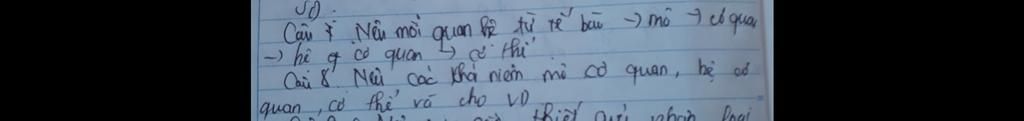 VD:
Câu 7 Nêu mối quan hệ từ tế bào → mô → cơ quan
→ hệ cơ quan → cơ thể
Câu 8 Nêu các khái niệm mô cơ quan, hệ cơ
quan, cơ thể và cho VD